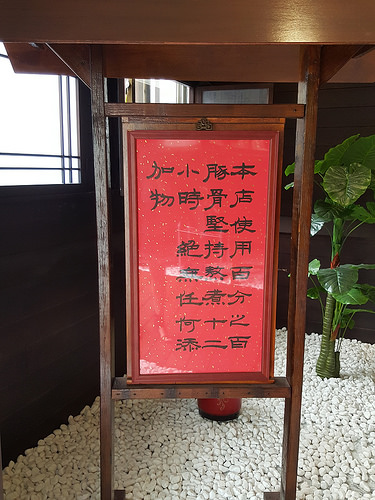 本店使用百分之百
豚骨堅持熬煮十二
小時 絕無任何添
加物